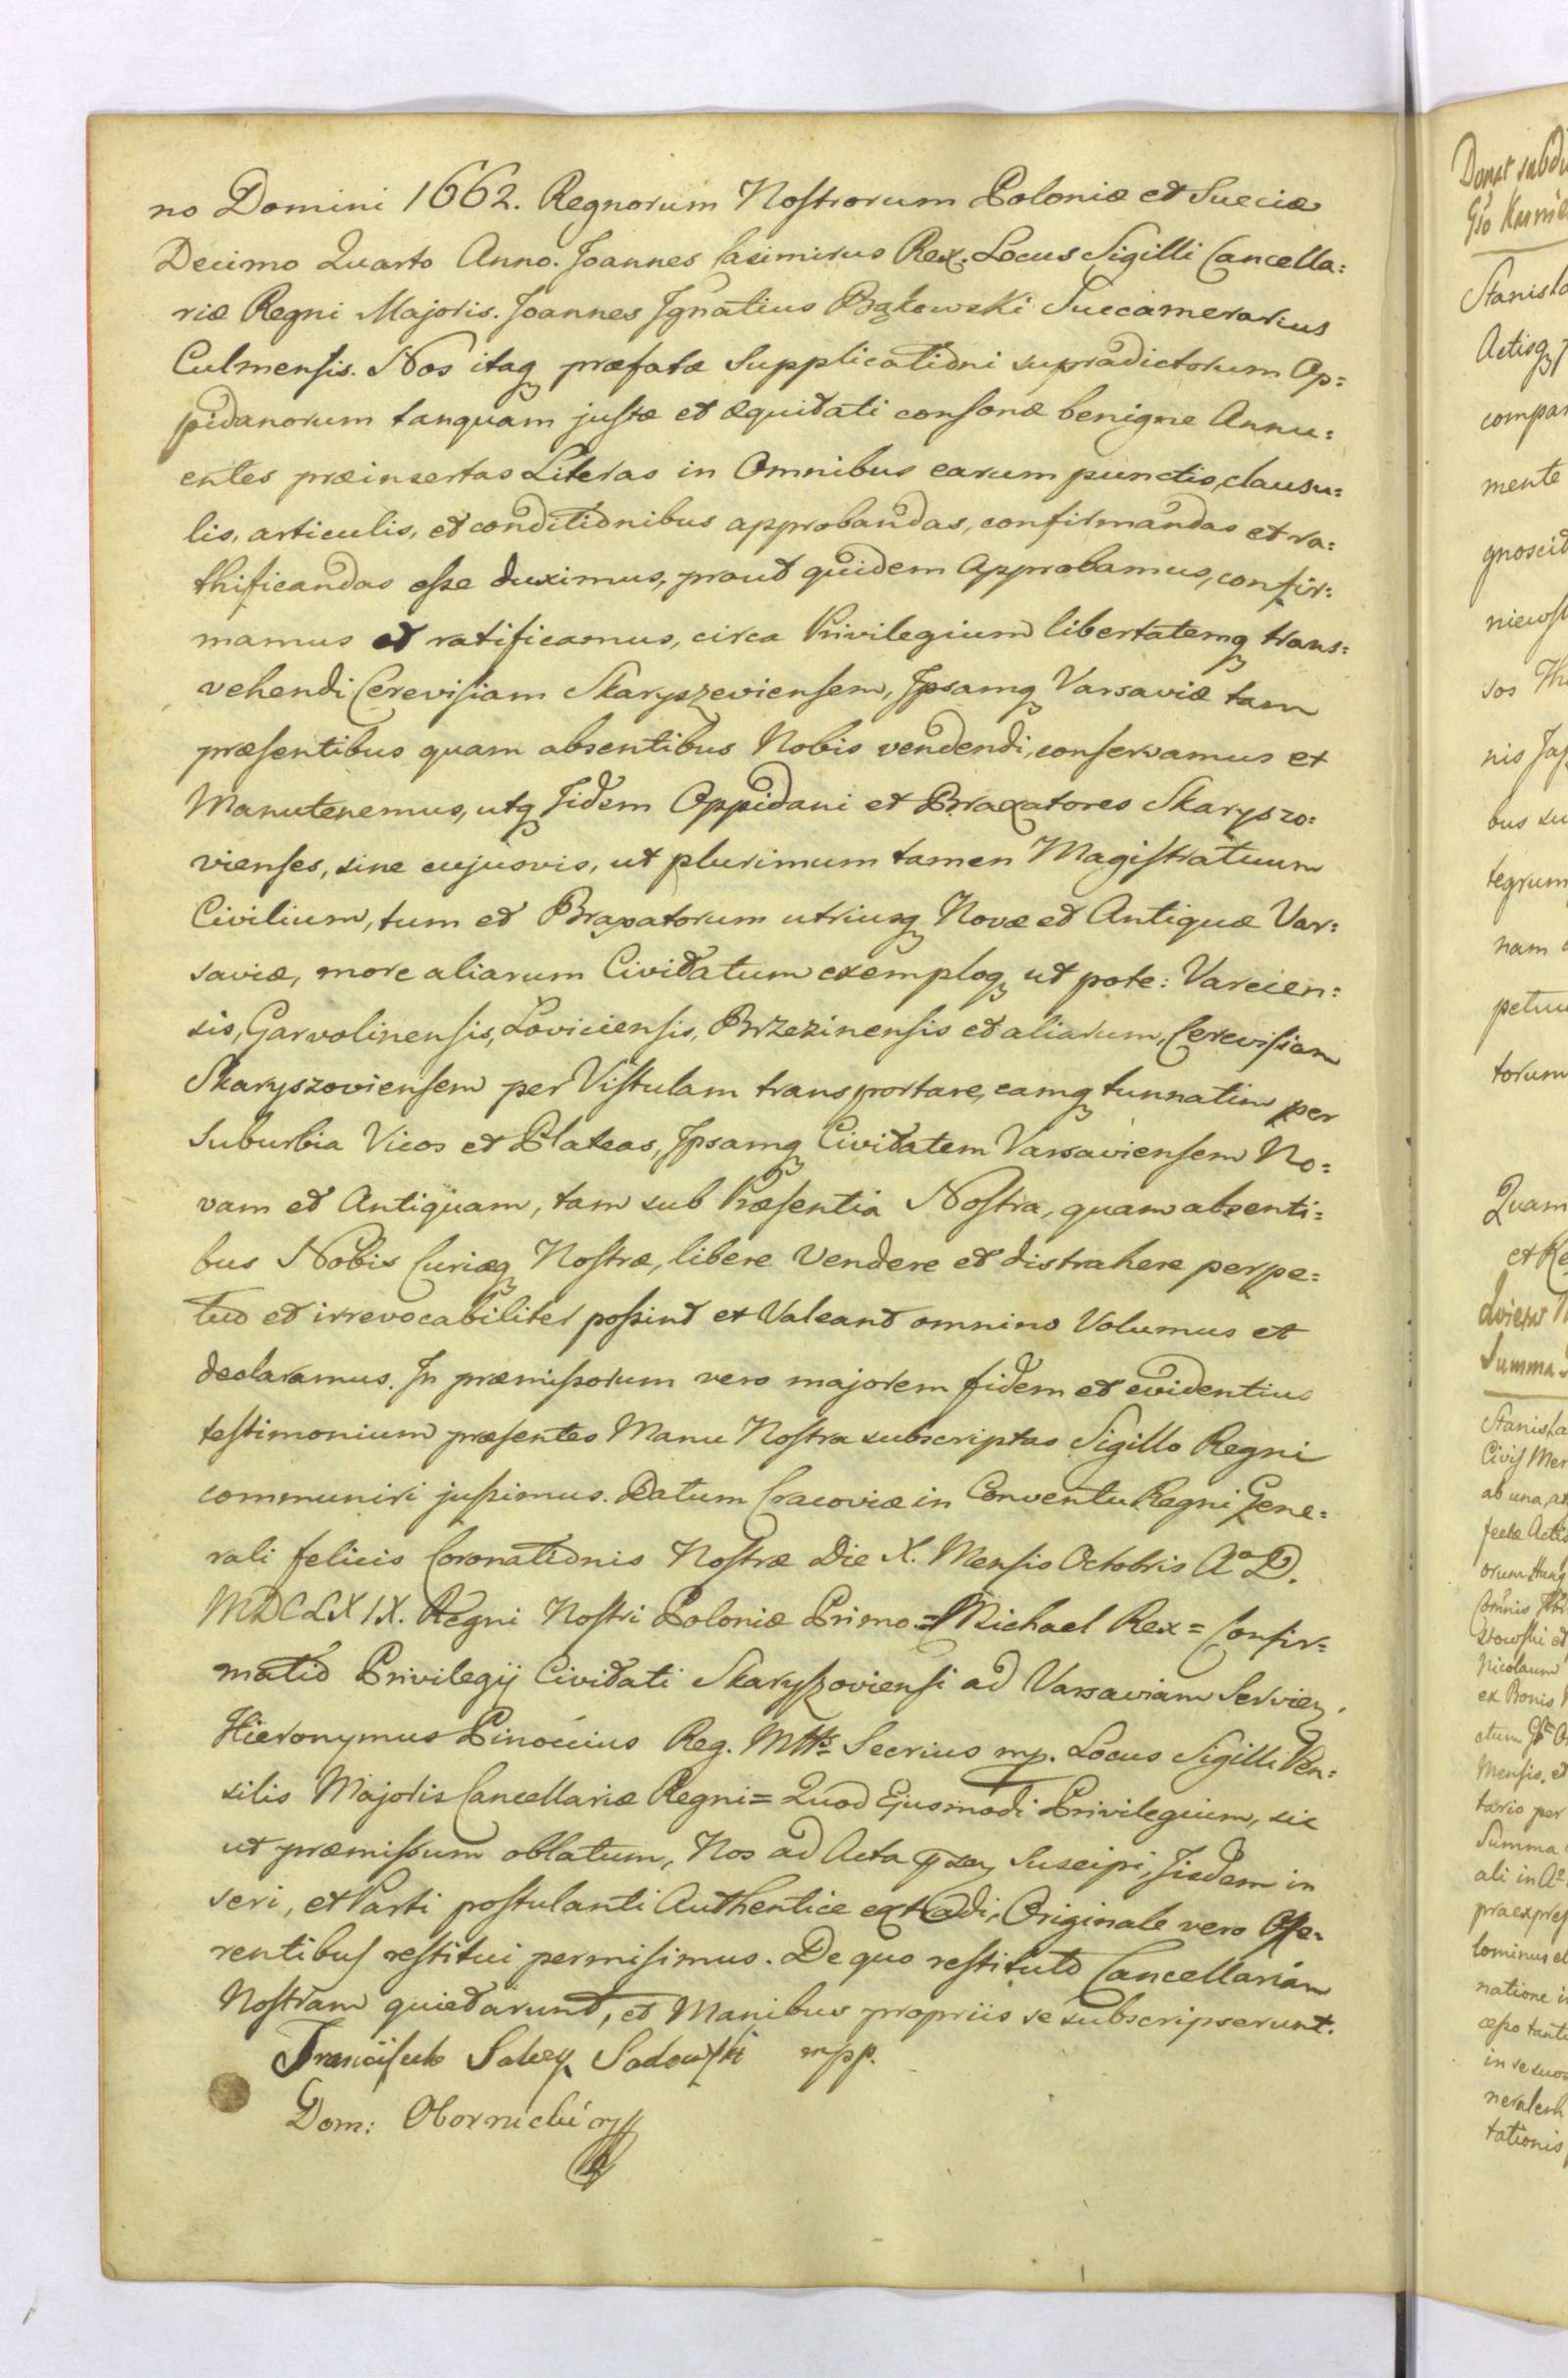 no Domini 1662. Regnorum Nostrorum Poloniæ et Sueciæ
Decimo Quarto Anno. Joannes Casimirus Rex. Locus Sigilli Cancella=
riæ Regni Majoris. Joannes Ignatius Bąkowski Succamerarius
Culmensis. Nos itaq præfatæ Supplicationi supradictorum Op=
pidanorum tanquam justæ et æquitati consonæ benigne Annu=
entes præinsertas Literas in Omnibus earum punctis, clausu=
lis, articulis, et conditionibus approbandas, confirmandas et ra=
thificandas esse duximus, prout quidem Approbamus, confir=
mamus et ratificamus, circa Privilegium libertatemq trans=
vehendi Cerevisiam Skaryszeviensem, Ipsamq Varsaviæ tam
præsentibus quam absentibus Nobis vendendi, conservamus et
Manutenemus, utq Iidem Oppidani et Braxatores Skaryszo=
vienses, sine cujusvis, ut plurimum tamen Magistratuum
Civilium, tum et Braxatorum utriusq Novæ et Antiquæ Var=
saviæ, more aliarum Civitatum exemploq ut pote: Varcien=
sis, Garvolinensis, Loviciensis, Brzezinensis et aliarum, Cerevisiam
Skaryszoviensem per Vistulam transportare, eamq tunnatim per
Suburbia Vicos et Plateas, Ipsamq Civitatem Varsaviensem No=
vam et Antiquam, tam sub Præsentia Nostra, quam absenti=
bus Nobis Curiæq Nostræ, libere Vendere et distrahere perpe=
tuo et irrevocabiliter possint et Valeant omnino Volumus et
declaramus. In præmissorum vero majorem fidem et evidentius
testimonium præsentes Manu Nostra subscriptas Sigillo Regni
communiri jussimus. Datum Cracoviæ in Conventu Regni Gene=
rali felicis Coronationis Nostræ Die X. Mensis Octobris Aº D.
MDCLXIX. Regni Nostri Poloniæ Primo.= Michael Rex = Confir=
matio Privilegij Civitati Skaryszoviensi ad Varsaviam Servien.
Hieronymus Pinoccius Reg. Mttis Secrius mp. Locus Sigilli Pen=
silis Majoris Cancellariæ Regni = Quod Ejusmodi Privilegium, sic
ut præmissum oblatum, Nos ad Acta suscipi, Iisdem in
seri, et Parti postulanti Authentice extradi, Originale vero Offe=
rentibus restitui permisimus. De quo restituto Cancellariam
Nostram quietarunt, et Manibus propriis se subscripserunt.
Franciszek Salezy Sadowski mpp.
Dom: Obornicki mpp
Stanisla
Actisq
compar
mente
gnoscit
nis
bus su
tegrum
nam
petuu
torum
Quam
et Re
Summa
Stanisla
ab una, at
Nicolaum
ex Bonis
Mensis, et
tario per
Summa
ali in Aº
præexpres
natione i
in se suos
tationis